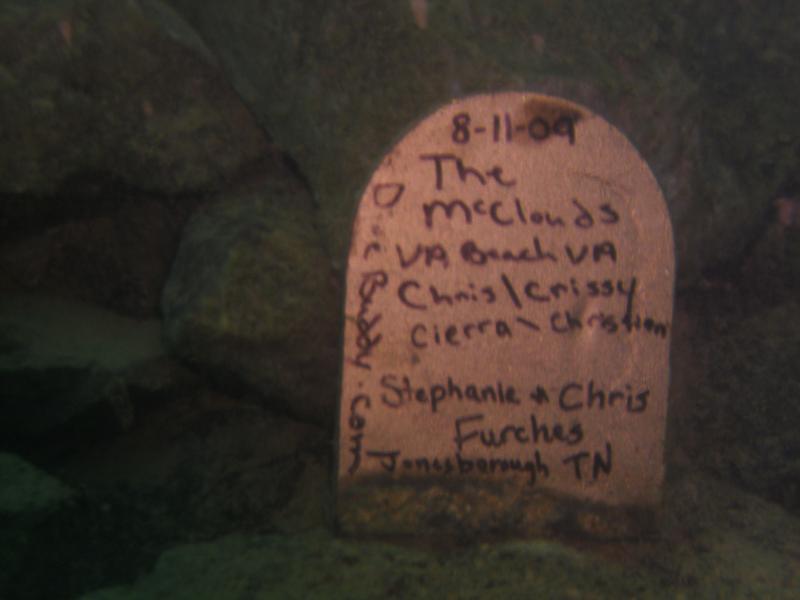 8-11-09
The
McClouds
VA Beach VA
Chris\Crissy
Cierra\Christian
Stephanie & Chris
Furches
Jonesborough TN
Buddy.com